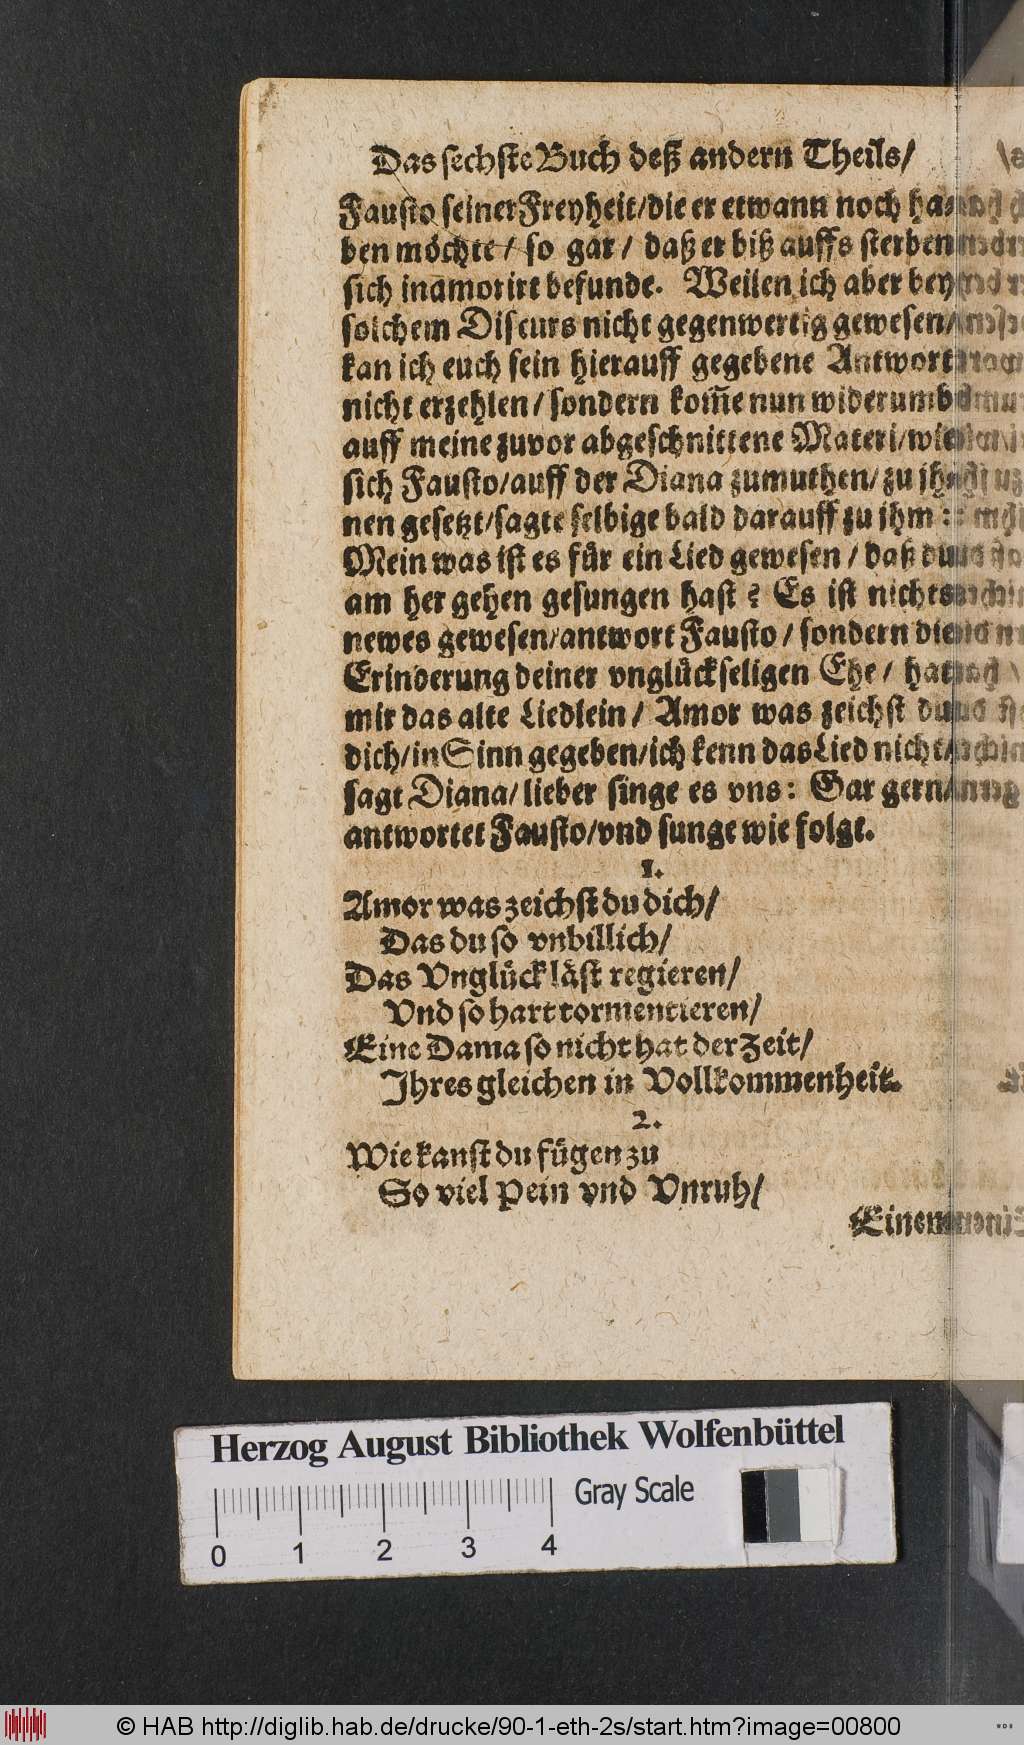 Das sechste Buch deß andern Theils/
Fausto seiner Freyheit/die er etwann noch ha-
ben möchte/ so gar/ daß er biß auffs sterben
sich inamorirt befunde. Weilen ich aber bey
solchem Discurs nicht gegenwertig gewesen/
kan ich euch sein hierauff gegebene Antwort
nicht erzehlen/sondern kom̃e nun widerumb
auff meine zuvor abgeschnittene Materi/wie
sich Fausto/auff der Diana zumuthen/zu jh-
nen gesetzt/sagte selbige bald darauff zu jhm:
Mein was ist es für ein Lied gewesen/ daß du
am her gehen gesungen hast? Es ist nichts
newes gewesen/antwort Fausto/ sondern die
Erinderung deiner vnglückseligen Ehe/ hat
mir das alte Liedlein/ Amor was zeichst du
dich/in Sinn gegeben/ich kenn das Lied nicht/
sagt Diana/lieber singe es vns: Gar gern/
antwortet Fausto/vnd sunge wie folgt.
1.
Amor was zeichst du dich/
Das du so vnbillich/
Das Vnglück läst regieren/
Vnd so hart tormentieren/
Eine Dama so nicht hat der Zeit/
Jhres gleichen in Vollkommenheit.
2.
Wie kanst du fügen zu
So viel Pein vnd Vnruh/
Einem
Herzog August Bibliothek Wolfenbüttel
Gray Scale
0 1 2 3 4
© HAB http://diglib.hab.de/drucke/90-1-eth-2s/start.htm?image=00800